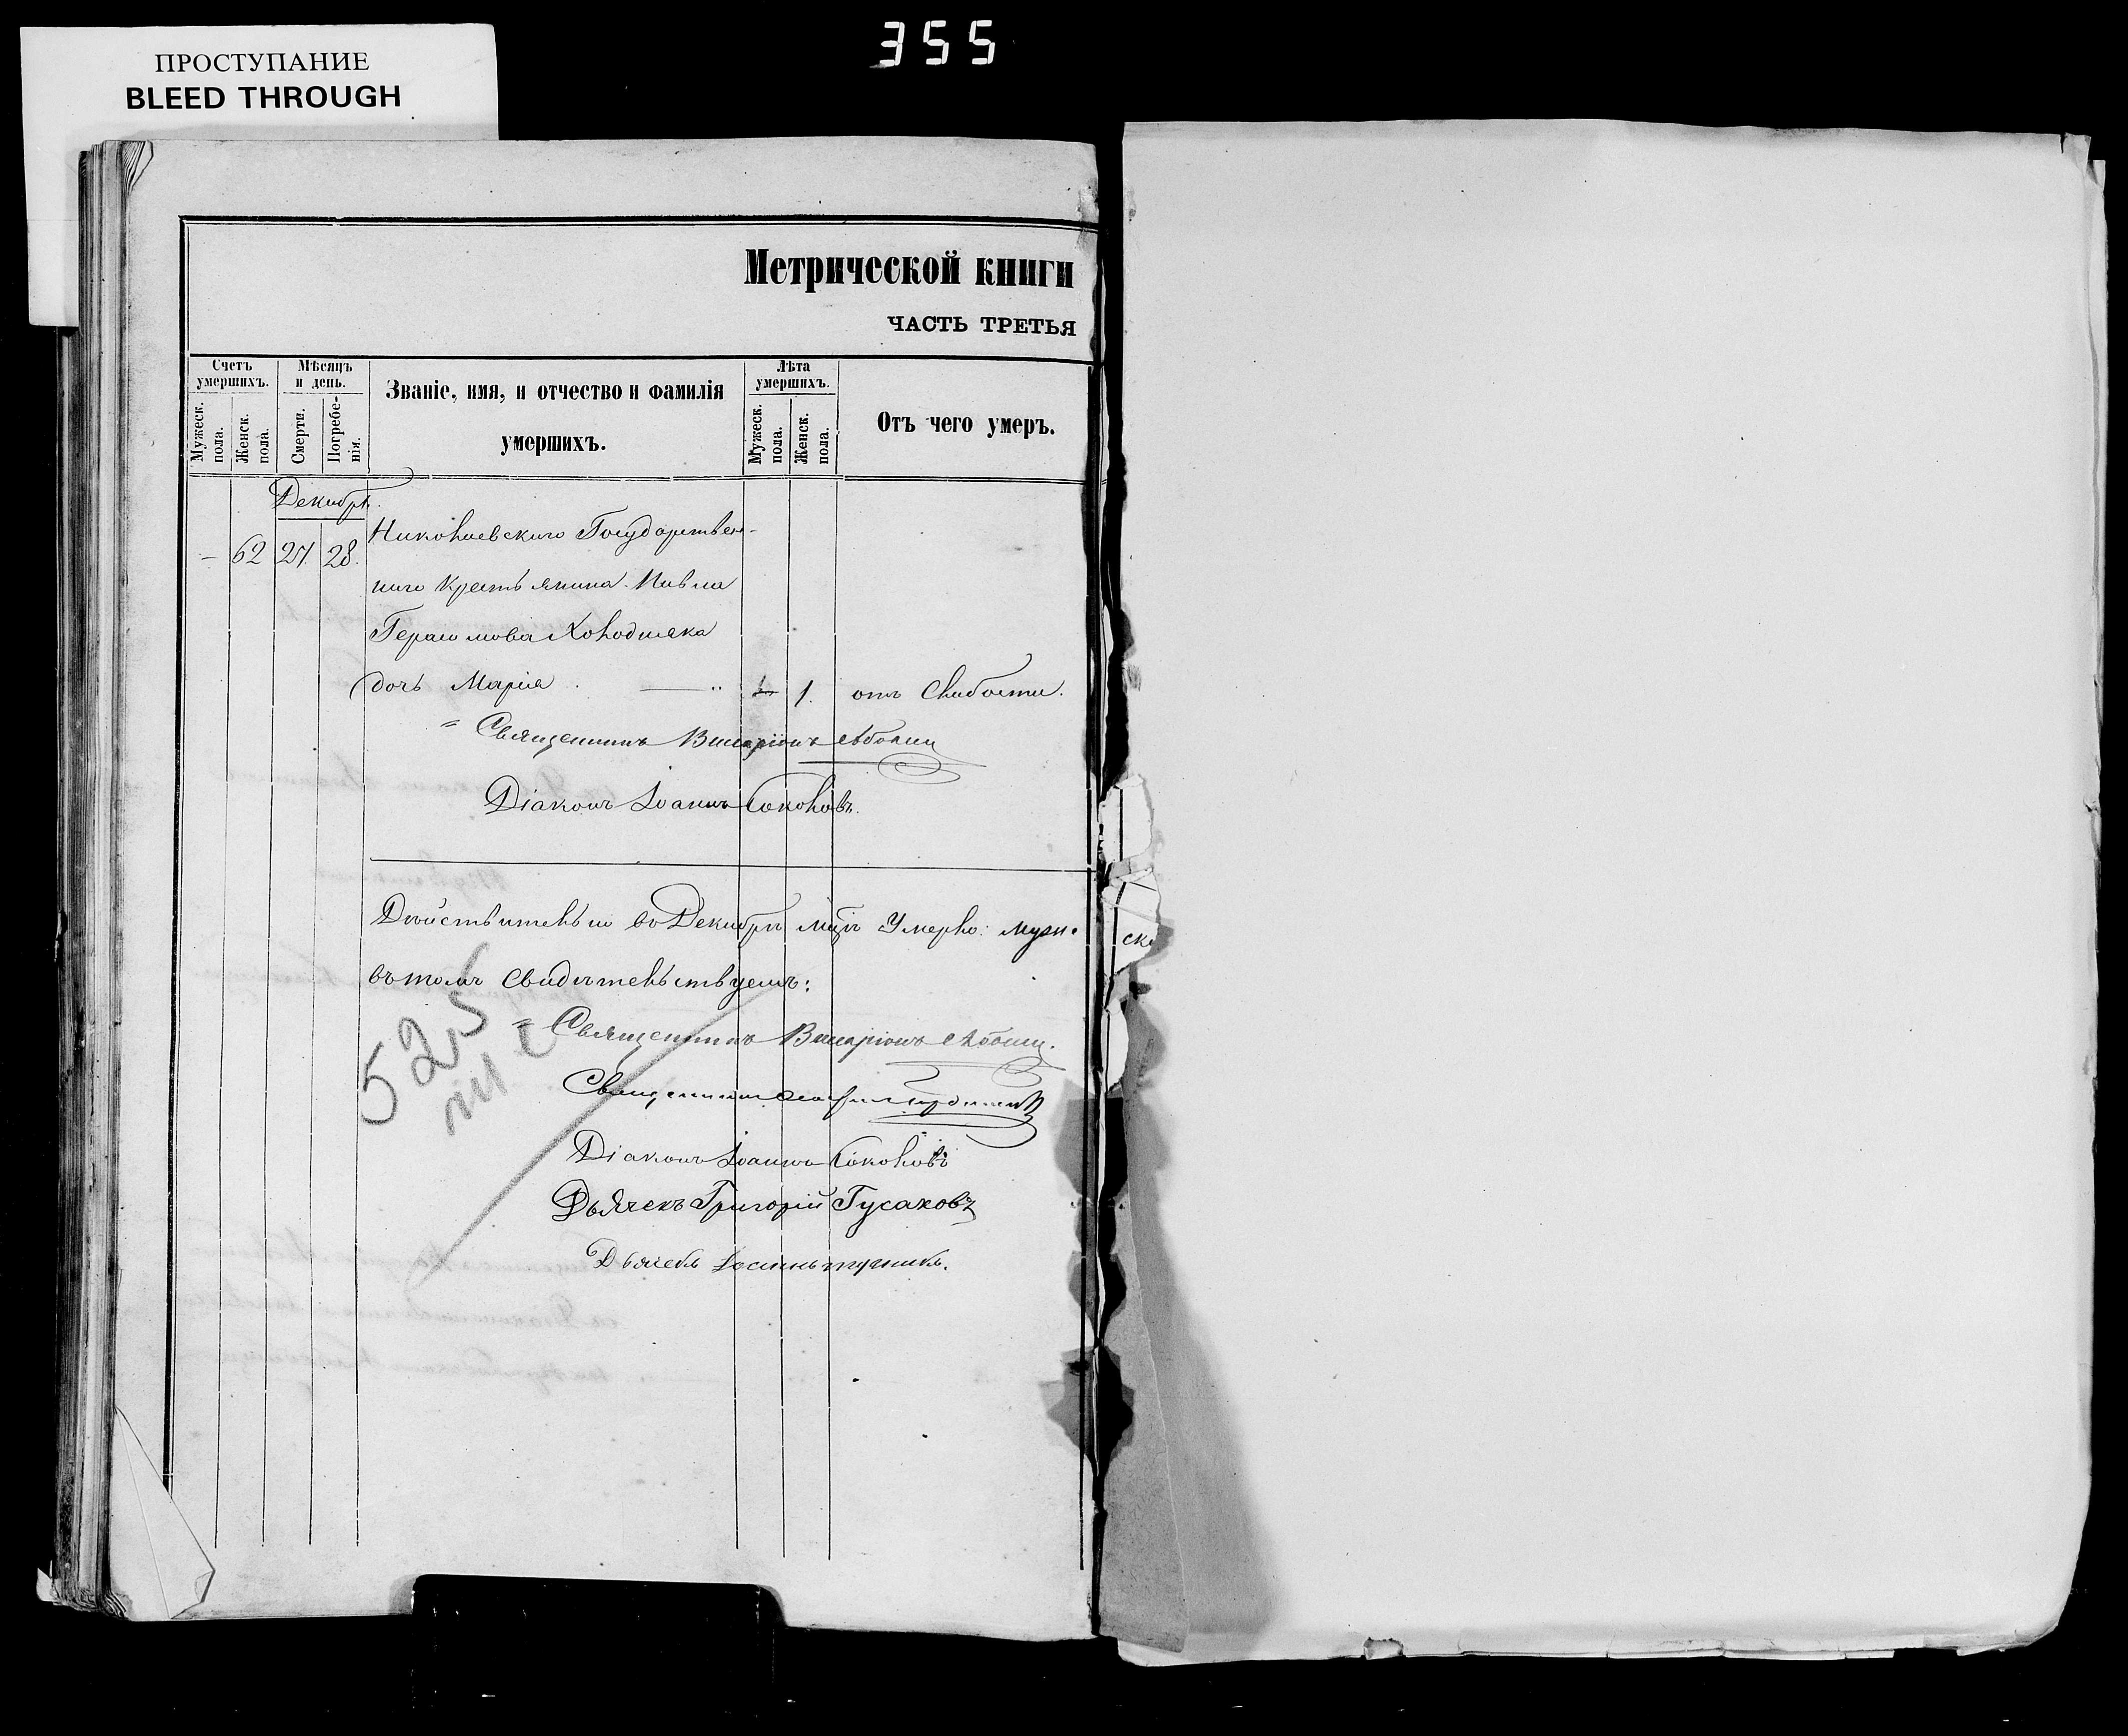 355
ПРОСТУПАНИЕ
BLEED THROUGH
Метрической книги
ЧАСТЬ ТРЕТЬЯ
Счетъ умершихъ.
Мужеск. пола.
Женск. пола.
Мѣсяцъ и день.
Смерти.
Погребе-нія.
Званіе, имя, и отчество и фамилія
умершихъ.
Лѣта умершихъ.
Мужеск. пола.
Женск. пола.
Отъ чего умеръ.
Декабрь.
— 62 27. 28. Николаевскаго Государствен-
наго крестьянина Павла
Герасимова Холодняка
дочь Марія. 1. отъ слабости.
Священникъ Виссаріонъ
Діаконъ Іоаннъ Соколовъ.
Дѣйствительно въ Декабрѣ Умерло: муж.
ск
въ томъ свидѣтельствуемъ:
Священникъ Виссаріонъ
Священникъ
Діаконъ Іоаннъ Соколовъ
Дьячекъ Григорій Гусаковъ
Дьячекъ
525